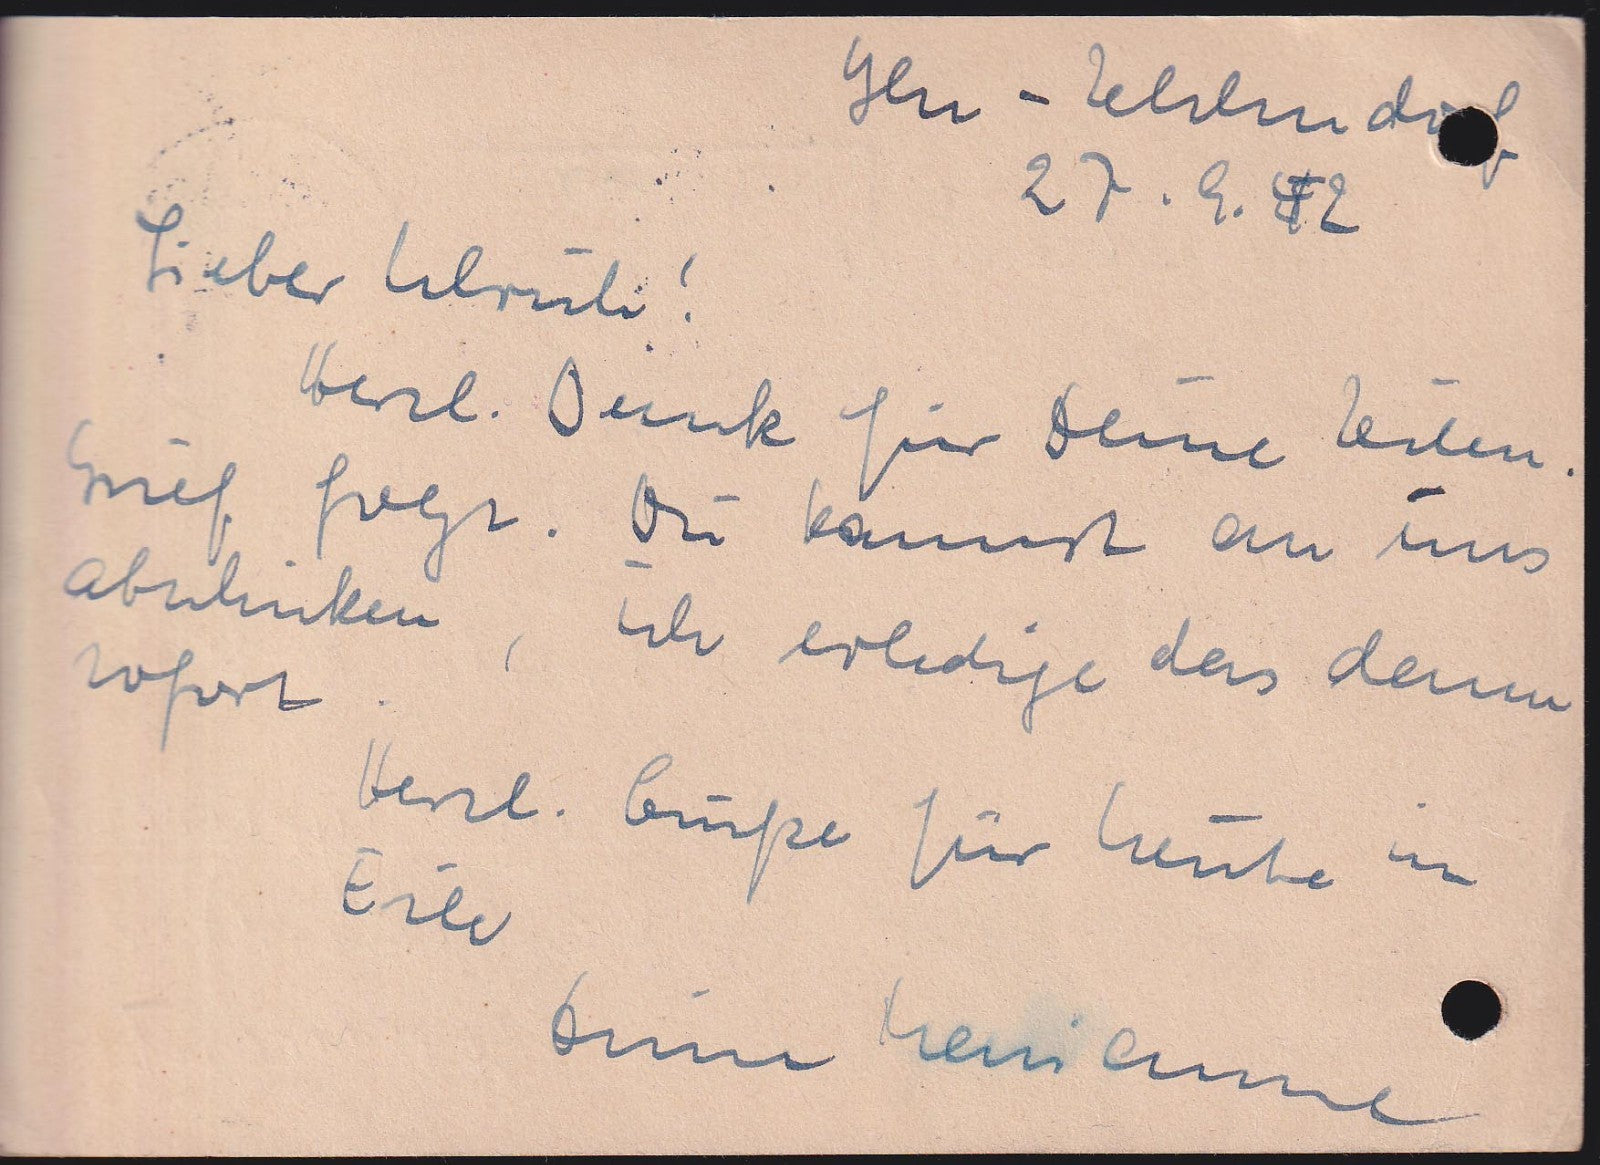 Bln - Zehlendorf
27. 9. 42
Lieber Ulrich!
Herzl. Dank für Deine Zeilen.
Brief folgt. Du kannst an uns
abschicken, ich erledige das dann
sofort.
Herzl. Grüße für heute in
Eile
Deine Marianne